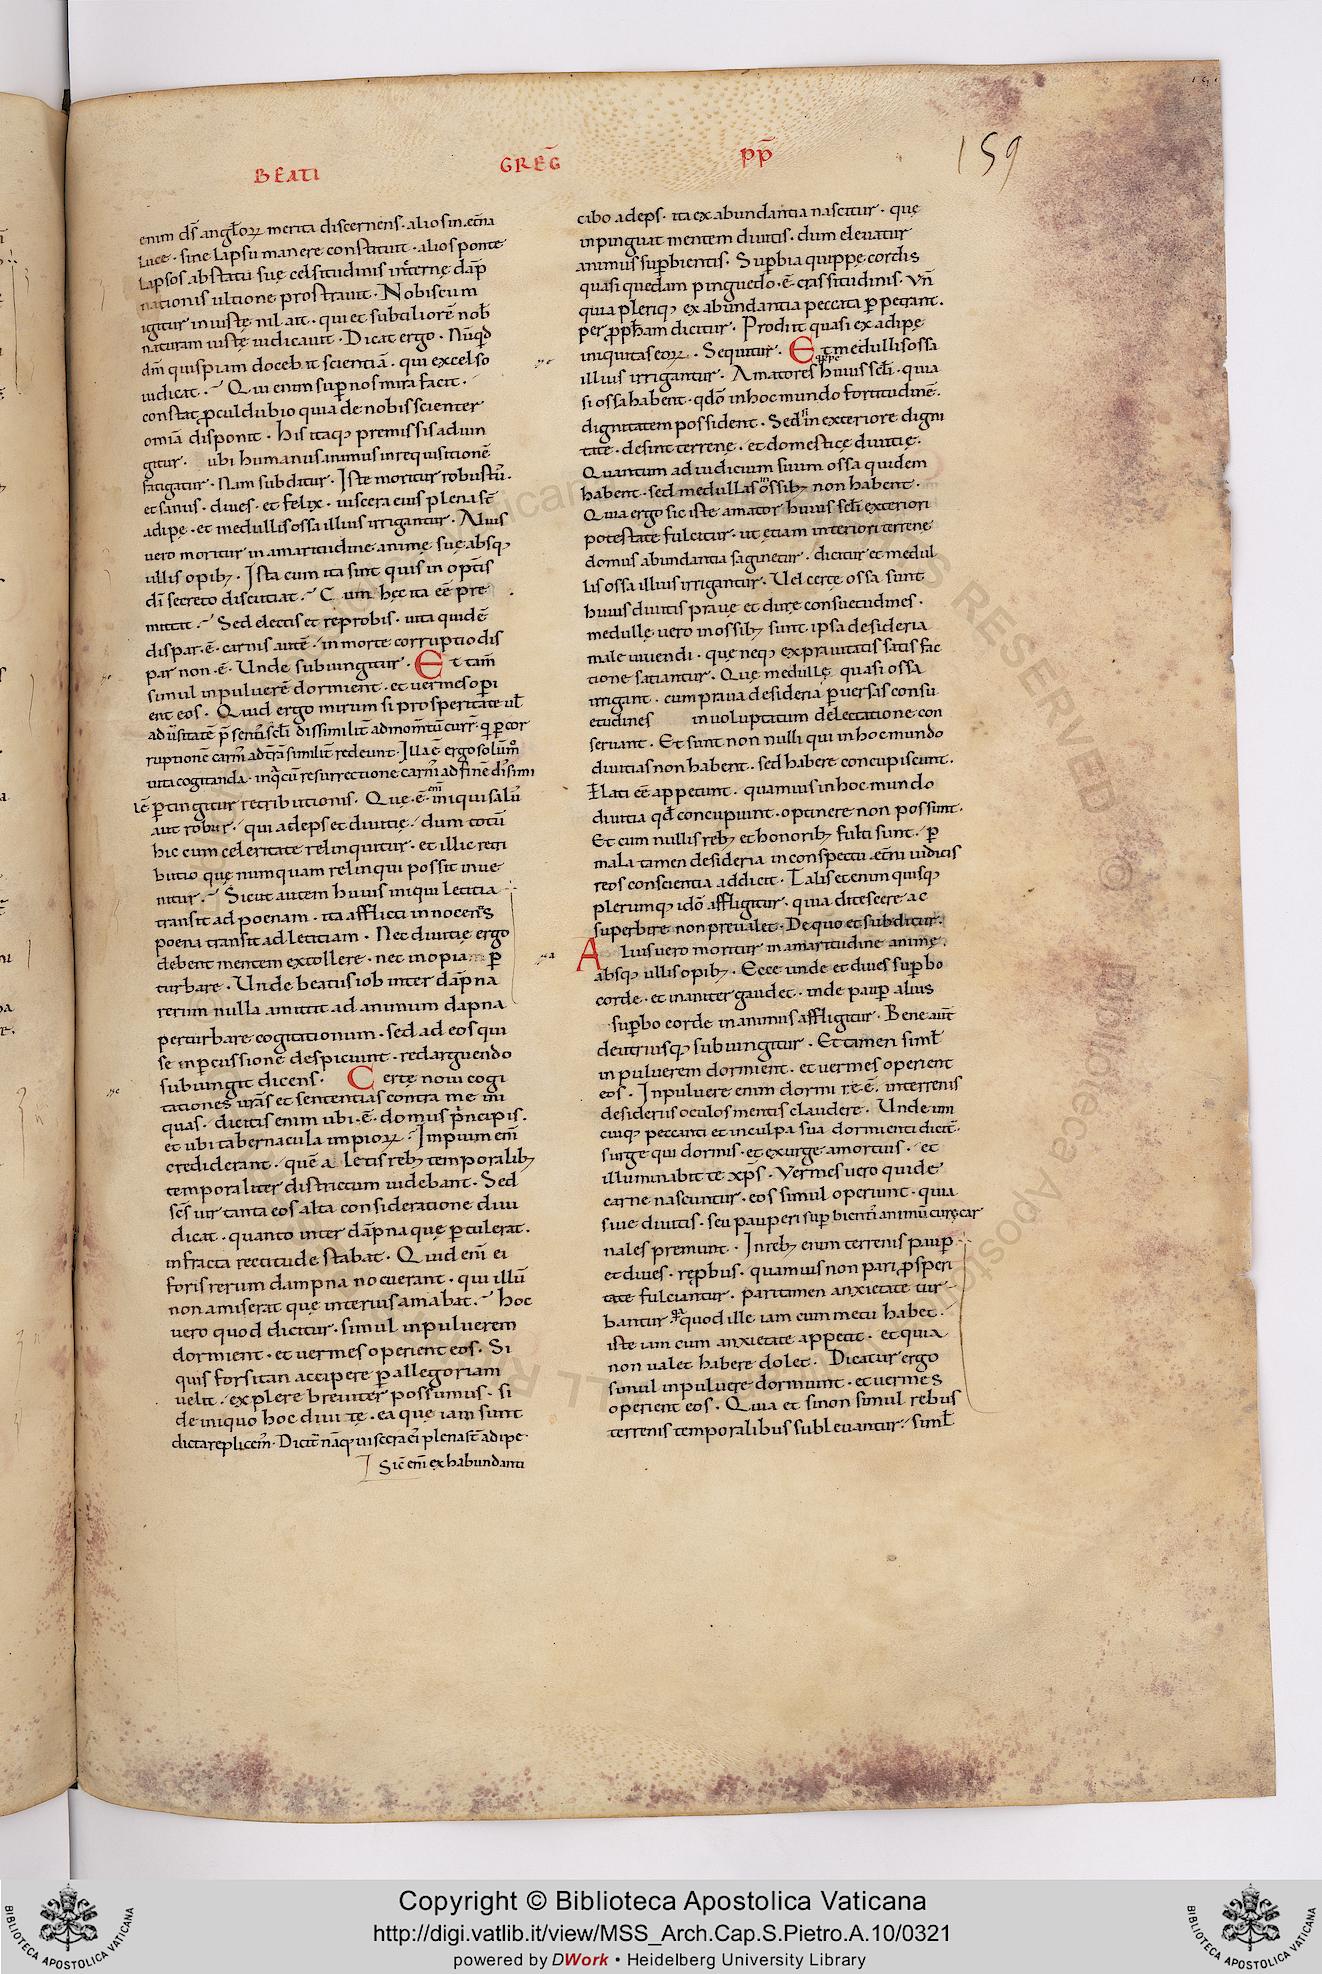 BEATI GREḠ PP̄
159
enim dś angłoꝝ merita discernens · alios in ęt̄na
luce · sine lapsu manere constituit · alios ponte
lapsos ab statu suę celsitudinis int̄ernę dāp
nationis ultione prostravit · Nobiscum
igitur iniustę nil ait · qui et subtiliorē nob̄
naturam iustę iudicavit · Dicat ergo · Nūqd
dm̄ quispiam docebit scientiā · qui excelso
iudicat · Qui enim sup̱ nos mira facit ·
constat ꝑculdubio quia de nobis scienter
omīa disponit · his itaqꝫ premissis adiun
gitur · ubi humanus animus in requisitionē
fatigatur · Nam subditur · Iste moritur robustꝰ ·
et sanus · dives · et felix · viscera eius plena st̄
adipe · et medullis ossa illius irrigantur · Alius
vero moritur in amaritudine animę suę absqꝫ
ullis opibꝫ · Ista cum ita sint quis in opt̄is
dī secreto discutiat · Cum hęc ita eē pre
mittit · Sed electis et reprobis · vita quidē
dispar · ē · carnis autē · in morte corruptio dis
par non · ē · Unde subiungitur · Et tam̄
simul in pulverē dormient · et vermes oꝑi
ent eos · Quid ergo mirum si prosperitate ul̄
ruptionē carnis ad t̄rā similit̄ redeunt · Illa ē ergo solūm̊
vita cogitanda · in q̊ cū resurrectione carnis ad finē dis̄simi
lē ꝑtingitur retributionis · Que · ē · iniqui salꝰ
aut robur · qui adeps et divitię · dum totū
hic cum celeritate relinquitur · et illic retri
butio quę numquam relinqui possit inve
nitur · Sicut autem huius iniqui letitia
transit ad poenam · ita afflicti innocentis
poena transit ad letitiam · Nec divitię ergo
debent mentem extollere · nec inopia ꝑ
turbare · Unde beatus iob inter dāpna
rerum nulla amittit ad animum dapna
perturbare cogitationum · sed ad eos qui
se in ꝑcussione despiciunt · redarguendo
subiungit dicens · Certę novi cogi
tationes vrās et sententias contra me ini
quas · dicitis enim ubi · ē · domus p̄ncipis ·
et ubi tabernacula impioꝝ · Impium em̄
crediderant · quē a letis rebꝫ temporalibꝫ
temporaliter districtum videbant · Sed
sc̄s vir tanta eos alta consideratione diiu
dicat · quanto inter dāpna quę ꝑculerat ·
infracta rectitude stabat · Quid enī ei
foris rerum dampna nocuerant · qui illū
non amiserat quę interius amabat · hoc
vero quod dicitur · simul in pulverem
dormient · et vermes operient eos · Si
quis forsitan accipere ꝑ allegoriam
velit · explere breviter possumus · si
de iniquo hoc divite · ea quę iam sunt
dicta replicem̄ · Dicit̄ nāqꝫ viscera ei plena st̄ adipe
Sic enī ex habundanti
cibo adeps · ita ex abundantia nascitur · quę
inpinguat mentem divitis · dum elevatur
animus suꝑbientis · Suꝑbia quippę cordis
quasi quedam pinguedo · ē · crassitudinis · Vn̄
quia pleriqꝫ ex abundantia peccata ꝑpetrant ·
per ꝓph̄am dicitur · Prodiit quasi ex adipę
iniquitas eoꝝ · Sequitur · Et medullis ossa
illius irrigantur · Amatores quippe huius sc̄li · quia
si ossa habent · qdō in hoc mundo fortitudinē ·
dignitatem possident · Sed si in exteriore digni
tate · desint terrenę · et domesticę divitię ·
Quantum ad iudicium suum ossa quidem
habent · sed medullas in ossibꝫ non habent ·
Quia ergo sic iste amator huius sc̄li exteriori
potestate fulcitur · ut etiam interiori terrene
domus abundantia saginetur · dicitur et medul
lis ossa illius irrigantur · Vel certe ossa sunt
huius divitis pravę et durę consuetudines ·
medullę vero in ossibꝫ sunt ipsa desideria
male vivendi · quę neqꝫ ex pravitatis satisfac
tione satiantur · Quę medullę quasi ossa
irrigant · cum prava desideria ꝑversas consu
etudines in voluptatum delectatione con
servant · Et sunt non nulli qui in hoc mundo
divitias non habent · sed habere concupiscunt ·
Elati eē appetunt · quamvis in hoc mundo
divitia qd̄ concupiunt · optinere non possunt ·
Et cum nullis rebꝫ et honoribꝫ fulti sunt · ꝑ
mala tamen desideria in conspectu ęt̄ni iudicis
reos conscientia addicit · Talis etenim quisqꝫ
plerumqꝫ idō affligitur · quia ditescere ac
superbire non prevalet · De quo et subditur ·
Alius vero moritur in amaritudine animę ·
absqꝫ ullis opibꝫ · Ecce unde et dives suꝑbo
corde · et inaniter gaudet · inde pauꝑ alius
suꝑbo corde inanius affligitur · Bene aut̄
de utriusqꝫ subiungitur · Et tamen siml̄
in pulverem dormient · et vermes operient
eos · In pulvere enim dormire · ē · in terrenis
desideriis oculos mentis claudere · Unde uni
cuiqꝫ peccanti et in culpa sua dormienti dicit̄ ·
surge qui dormis · et exurge a mortuis · et
illuminabit te xp̄s · Vermes vero qui de
carne nascuntur · eos simul operiunt · quia
sive divitis · seu pauperi suꝑbientis animū curę car
nales premunt · In rebꝫ enim terrenis pauꝑ
et dives · rep̱bus · quamvis non pari ꝓsperi
tate fulciantur · pari tamen anxietate tur
bantur quia quod ille iam cum metu habet ·
iste iam cum anxietate appetit · et quia
non valet habere dolet · Dicatur ergo
simul in pulvere dormiunt · et vermes
operient eos · Quia et si non simul rebus
terrenis temporalibus sublevantur · siml̄
Copyright © Biblioteca Apostolica Vaticana
http://digi.vatlib.it/view/MSS_Arch.Cap.S.Pietro.A.10/0321
powered by DWork • Heidelberg University Library
BIBLIOTECA APOSTOLICA VATICANA
BIBLIOTECA APOSTOLICA VATICANA